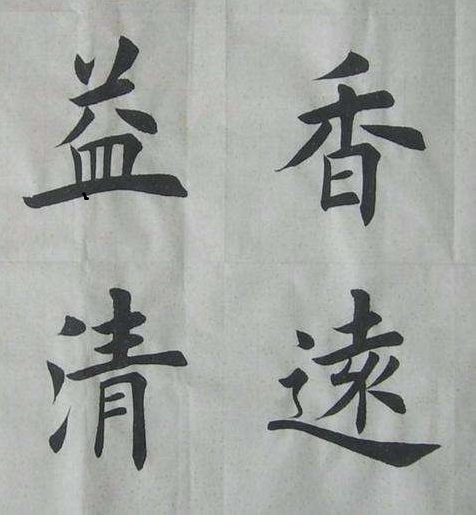 香遠
益清